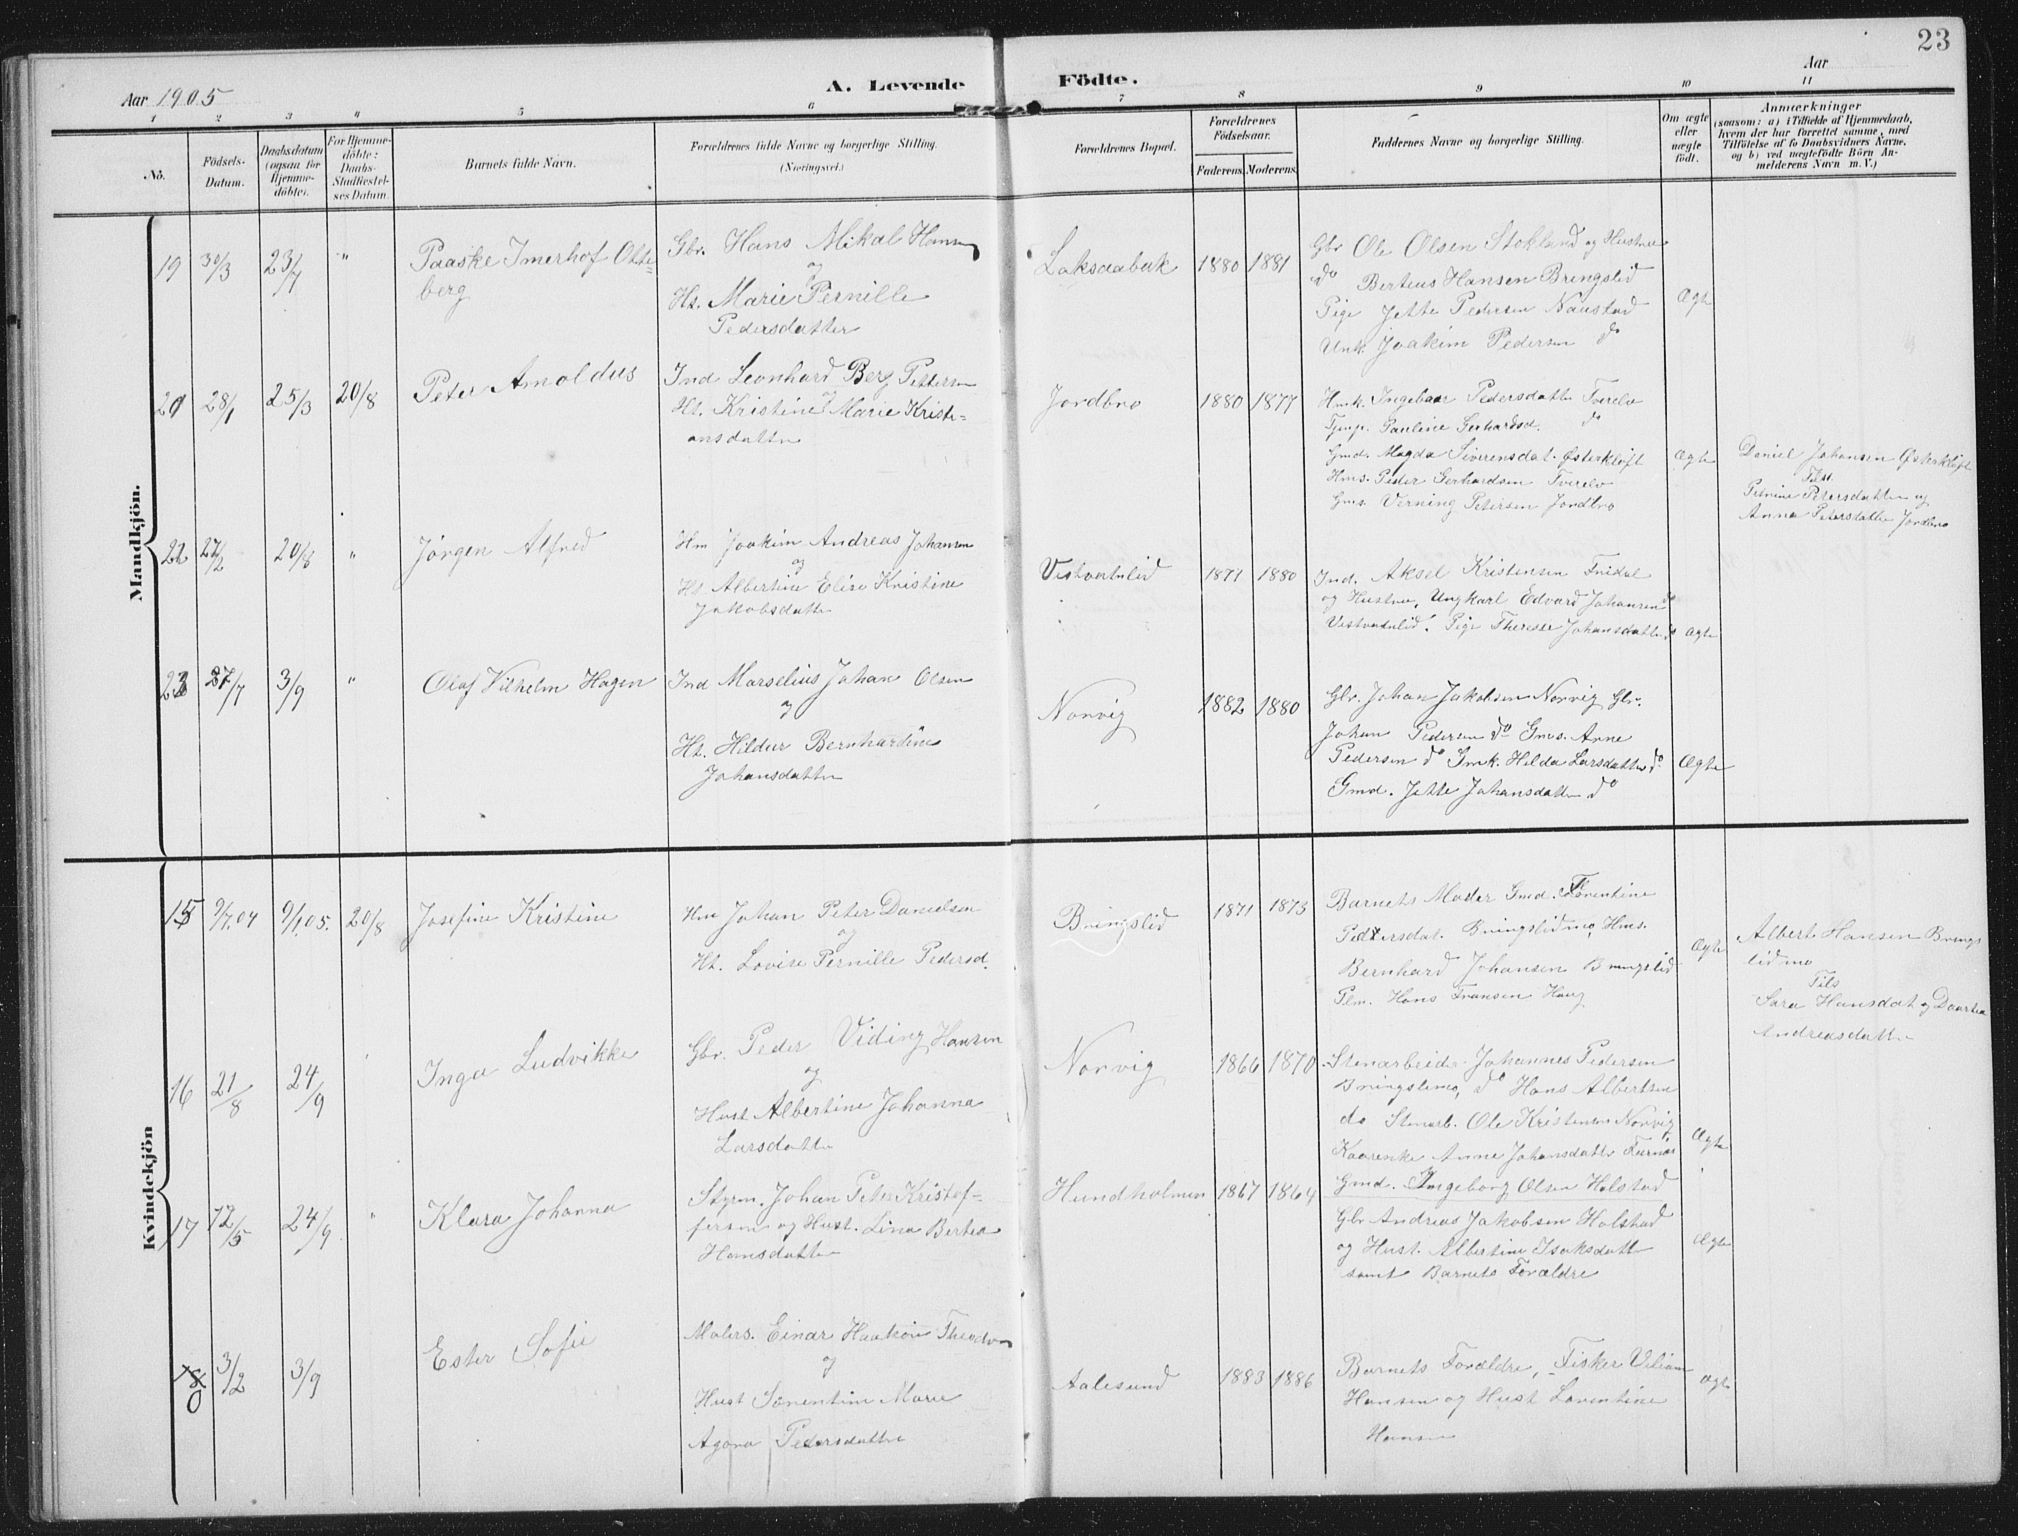 23
Aar 1905
A. Levende Födte.
Aar
1 2 3 4 5 6 7 8 9 10 11
No.
Födsels-Datum.
Daabsdatum (ogsaa for Hjemme-döbte).
For Hjemme-döbte: Daabs-Stadfæstel-ses Datum.
Barnets fulde Navn.
Forældrenes fulde Navne og borgerlige Stilling.
(Næringsvei.)
Forældrenes Bopæl.
Forældrenes Födselsaar.
Faderens. Moderens.
Faddernes Navne og borgerlige Stilling.
Om ægte eller uægte födt.
Anmærkninger
(saasom: a) i Tilfælde af Hjemmedaab, hvem der har forrettet samme, med Tilföielse af to Daabsvidners Navne, og b) ved uægtefödte Börn An-melderens Navn m. V.)
Mandkjön.
19 30/3 23/7 "
Paaske Imerhof Otte=
berg
Gbr. Hans Mikal Hansen
og
Ht. Marie Pernille
Pedersdatter
Laksaabak 1880 1881
Gbr Ole Olsen Stokland og Hustru
do Berteus Hansen Bringslid
Pige Jette Pedersen Naustad
Unk. Joakim Pedersen do
Ægte
20 28/1 25/3 20/8
Peter Arnoldus
Ind Leonhard Berg Pettersen
og
Ht. Kristine Marie Kristi=
ansdatter
Jordbro 1880 1877
Hmk. Ingebaar Pedersdatter Tverelv
Tjmp. Pauline Gerhardsd. do
Gmd. Magda Siverensdat. Østerkløft
Hms. Peder Gerhardsen Tverelv
Gms. Verning Petersen Jordbro
Ægte
Daniel Johansen Østerkløft
Tilst.
Petrine Petersdatter og
Anna Petersdatter Jordbro
22 27/2 20/8 "
Jørgen Alfred
Hm Joakim Andreas Johansen
og
Ht. Albertine Elise Kristine
Jakobsdatter
Vestvatnlid 1877 1880
Ind. Aksel Kristensen Fridal
og Hustru, Ungkarl Edvard Johansen
Vestvatnlid. Pige Therese Johansdatter do
Ægte
23 27/7 3/9 "
Olaf Vilhelm Hagen
Ind Marselius Johan Olsen
og
Ht. Hildur Bernhardine
Johansdatter
Norvig 1882 1880
Gbr. Johan Jakobsen Norvig Gbr.
Johan Pedersen do Gms. Anne
Pedersen do Smk. Hilda Larsdatter do
Gmd. Jette Johansdatter do
Ægte
Kvindekjön
15 9/7.04 9/1 05. 20/8
Josefine Kristine
Hm Johan Peter Danielsen
og
Ht. Lovise Pernille Pedersd.
Bringslid 1871 1873
Barnets Moder Gmd. Torentine
Pedersdat. Bringslidmo, Hms.
Bernhard Johansen Bringslid
Plm. Hans Fransen Haug
Ægte
Albert Hansen Brings
lidmo
Tils
Sara Hansdat og Daartea
Andreasdatter
16 21/8 24/9
Inga Ludvikke
Gbr. Peder Viding Hansen
og
Hust Albertine Johanna
Larsdatter
Norvig 1866 1870
Stenarbeider Johannes Pedersen
Bringslimo, do Hans Albertsen
do Stenarb. Ole Kristensen Norvig
Kaarenke Anne Johansdatter Furnes
Ægte
17 12/5 24/9 "
Klara Johanna
Styrm. Johan Peter Kristof=
fersen og Hust. Lina Bertea
Hansdatter
Hundholmen 1867 1864
Gmd. Ingeborg Olsen Holstad
Gbr Andreas Jakobsen Holstad
og Hust. Albertine Isaksdatt
samt Barnets Forældre
Ægte
18 3/2 3/9
0
Ester Sofie
Malers. Einar Haakon Theodor
og
Hust Sørentine Marie
Agora Pedersdatter
Aalesund 1883 1886
Barnets Forældre, Fisker Viliam
Hansen og Hust Laventine
Hansen
Ægte